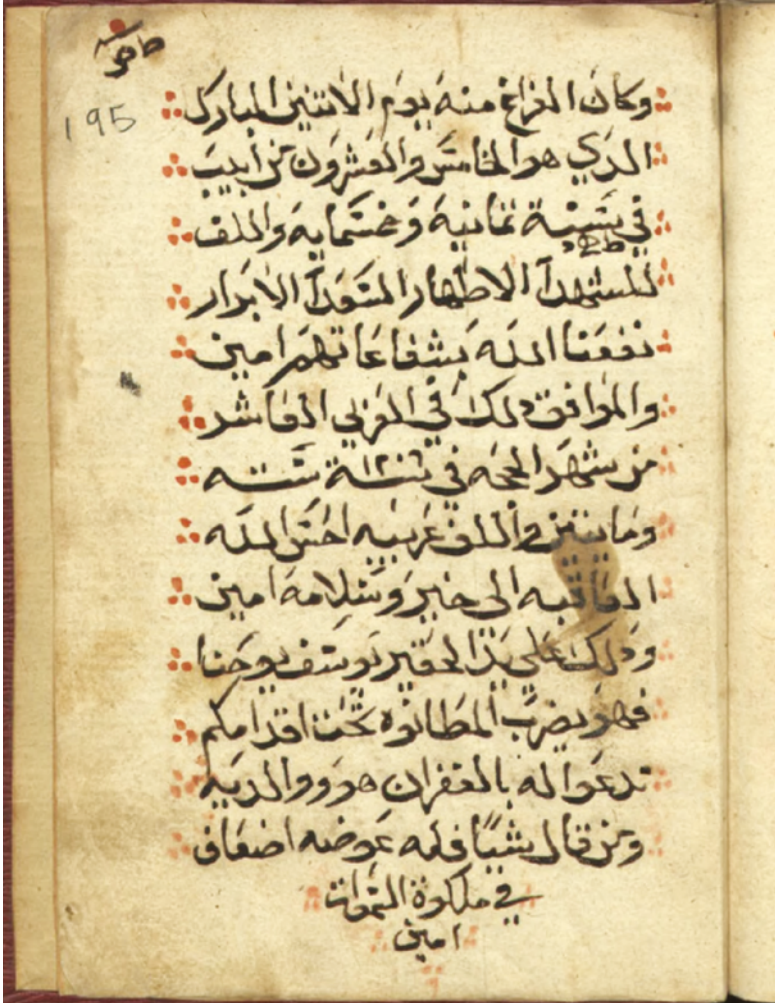 195
وكان الفراغ منه يوم الاثنين المبارك
الذي هو الخامس والعشرون من ابيب
في سنة ثمانية وخمسماية والف
للشهدآ الاطهار السعدآ الابرار
نفعنا الله بشفاعاتهم امين
والموافق ذلك في العربي العاشر
من شهر الحجه في سنة ١٢٠٦ سته
ومايتين والف عربيه احسن الله
العاقبه الى خير وسلامه امين
وذلك على يد الحقير يوسف يوحنا
فهو يضرب المطانوه تحت اقدامكم
تدعوا له بالغفران هو ووالديه
ومن قال شيًا فله عوضه اضعاف
في ملكوة السموات
امين